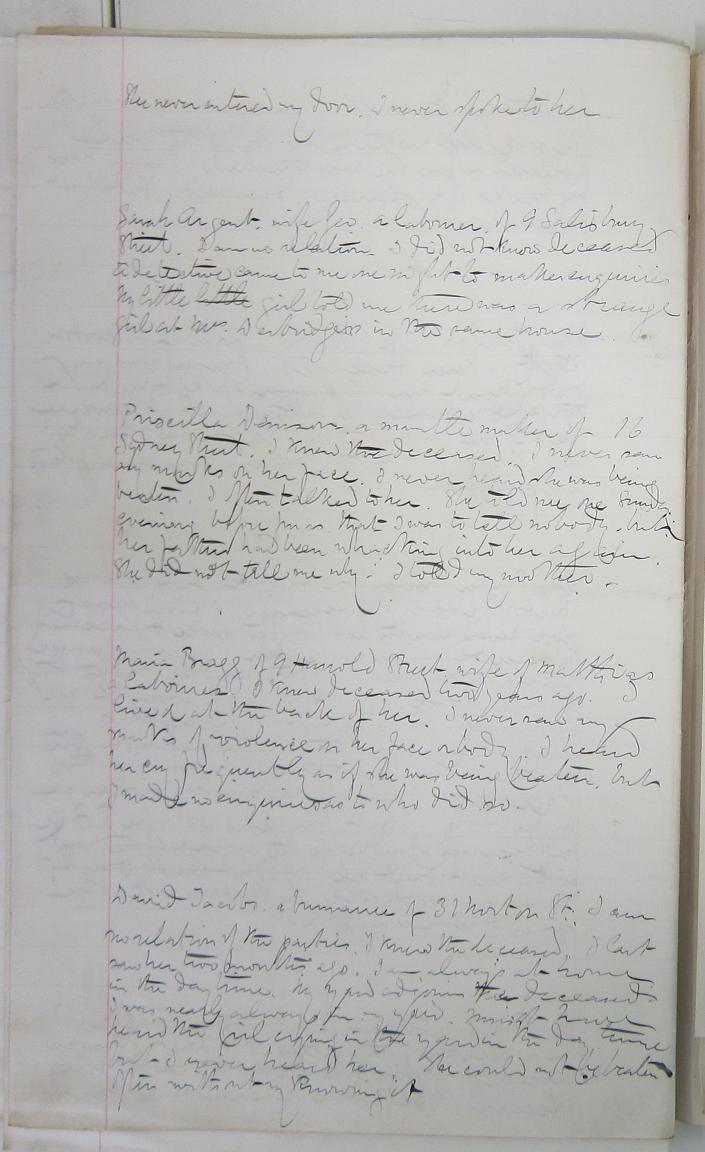 She never entered my door. I never spoke to her
Sarah Argent. wife Geo. a labourer, of 9 Salisbury
Street. I am no relation. I did not know deceased
A detective came to me one night to make enquiries
My little little girl told me there was a strange
girl at Mrs. in the same house.
Priscilla Denison, a mantle maker of 16
Sydney Street. I knew the deceased. I never saw
any marks on her face. I never heard she was being
beaten. I often talked to her. She told me one Sunday
evening before Xmas that I was to tell nobody but
her father had been whacking into her again.
She did not tell me why. I told my mother.
Maria Bragg of 9 Harold Street wife of Matthias
a labourer. I knew deceased two years ago. I
lived at the back of her. I never saw any
marks of violence on her face or body. I heard
her cry frequently as if she was being beaten. but
I made no enquiries as to who did so.
David Jacobs. a of 31 Norton St. I am
no relation of the parties. I knew the deceased. I last
saw her two months ago. I am always at home
in the day time. My yard adjoins the deceased's
I was nearly always in my yard. must have
heard the girl crying in the yard in the day time
but I never heard her. She could not be beaten
often without my knowing it